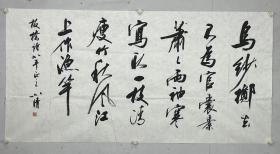 烏紗擲去
不為官囊橐
蕭々兩袖寒
寫取一枝清
瘦竹秋風江
上作漁竿
板橋詩